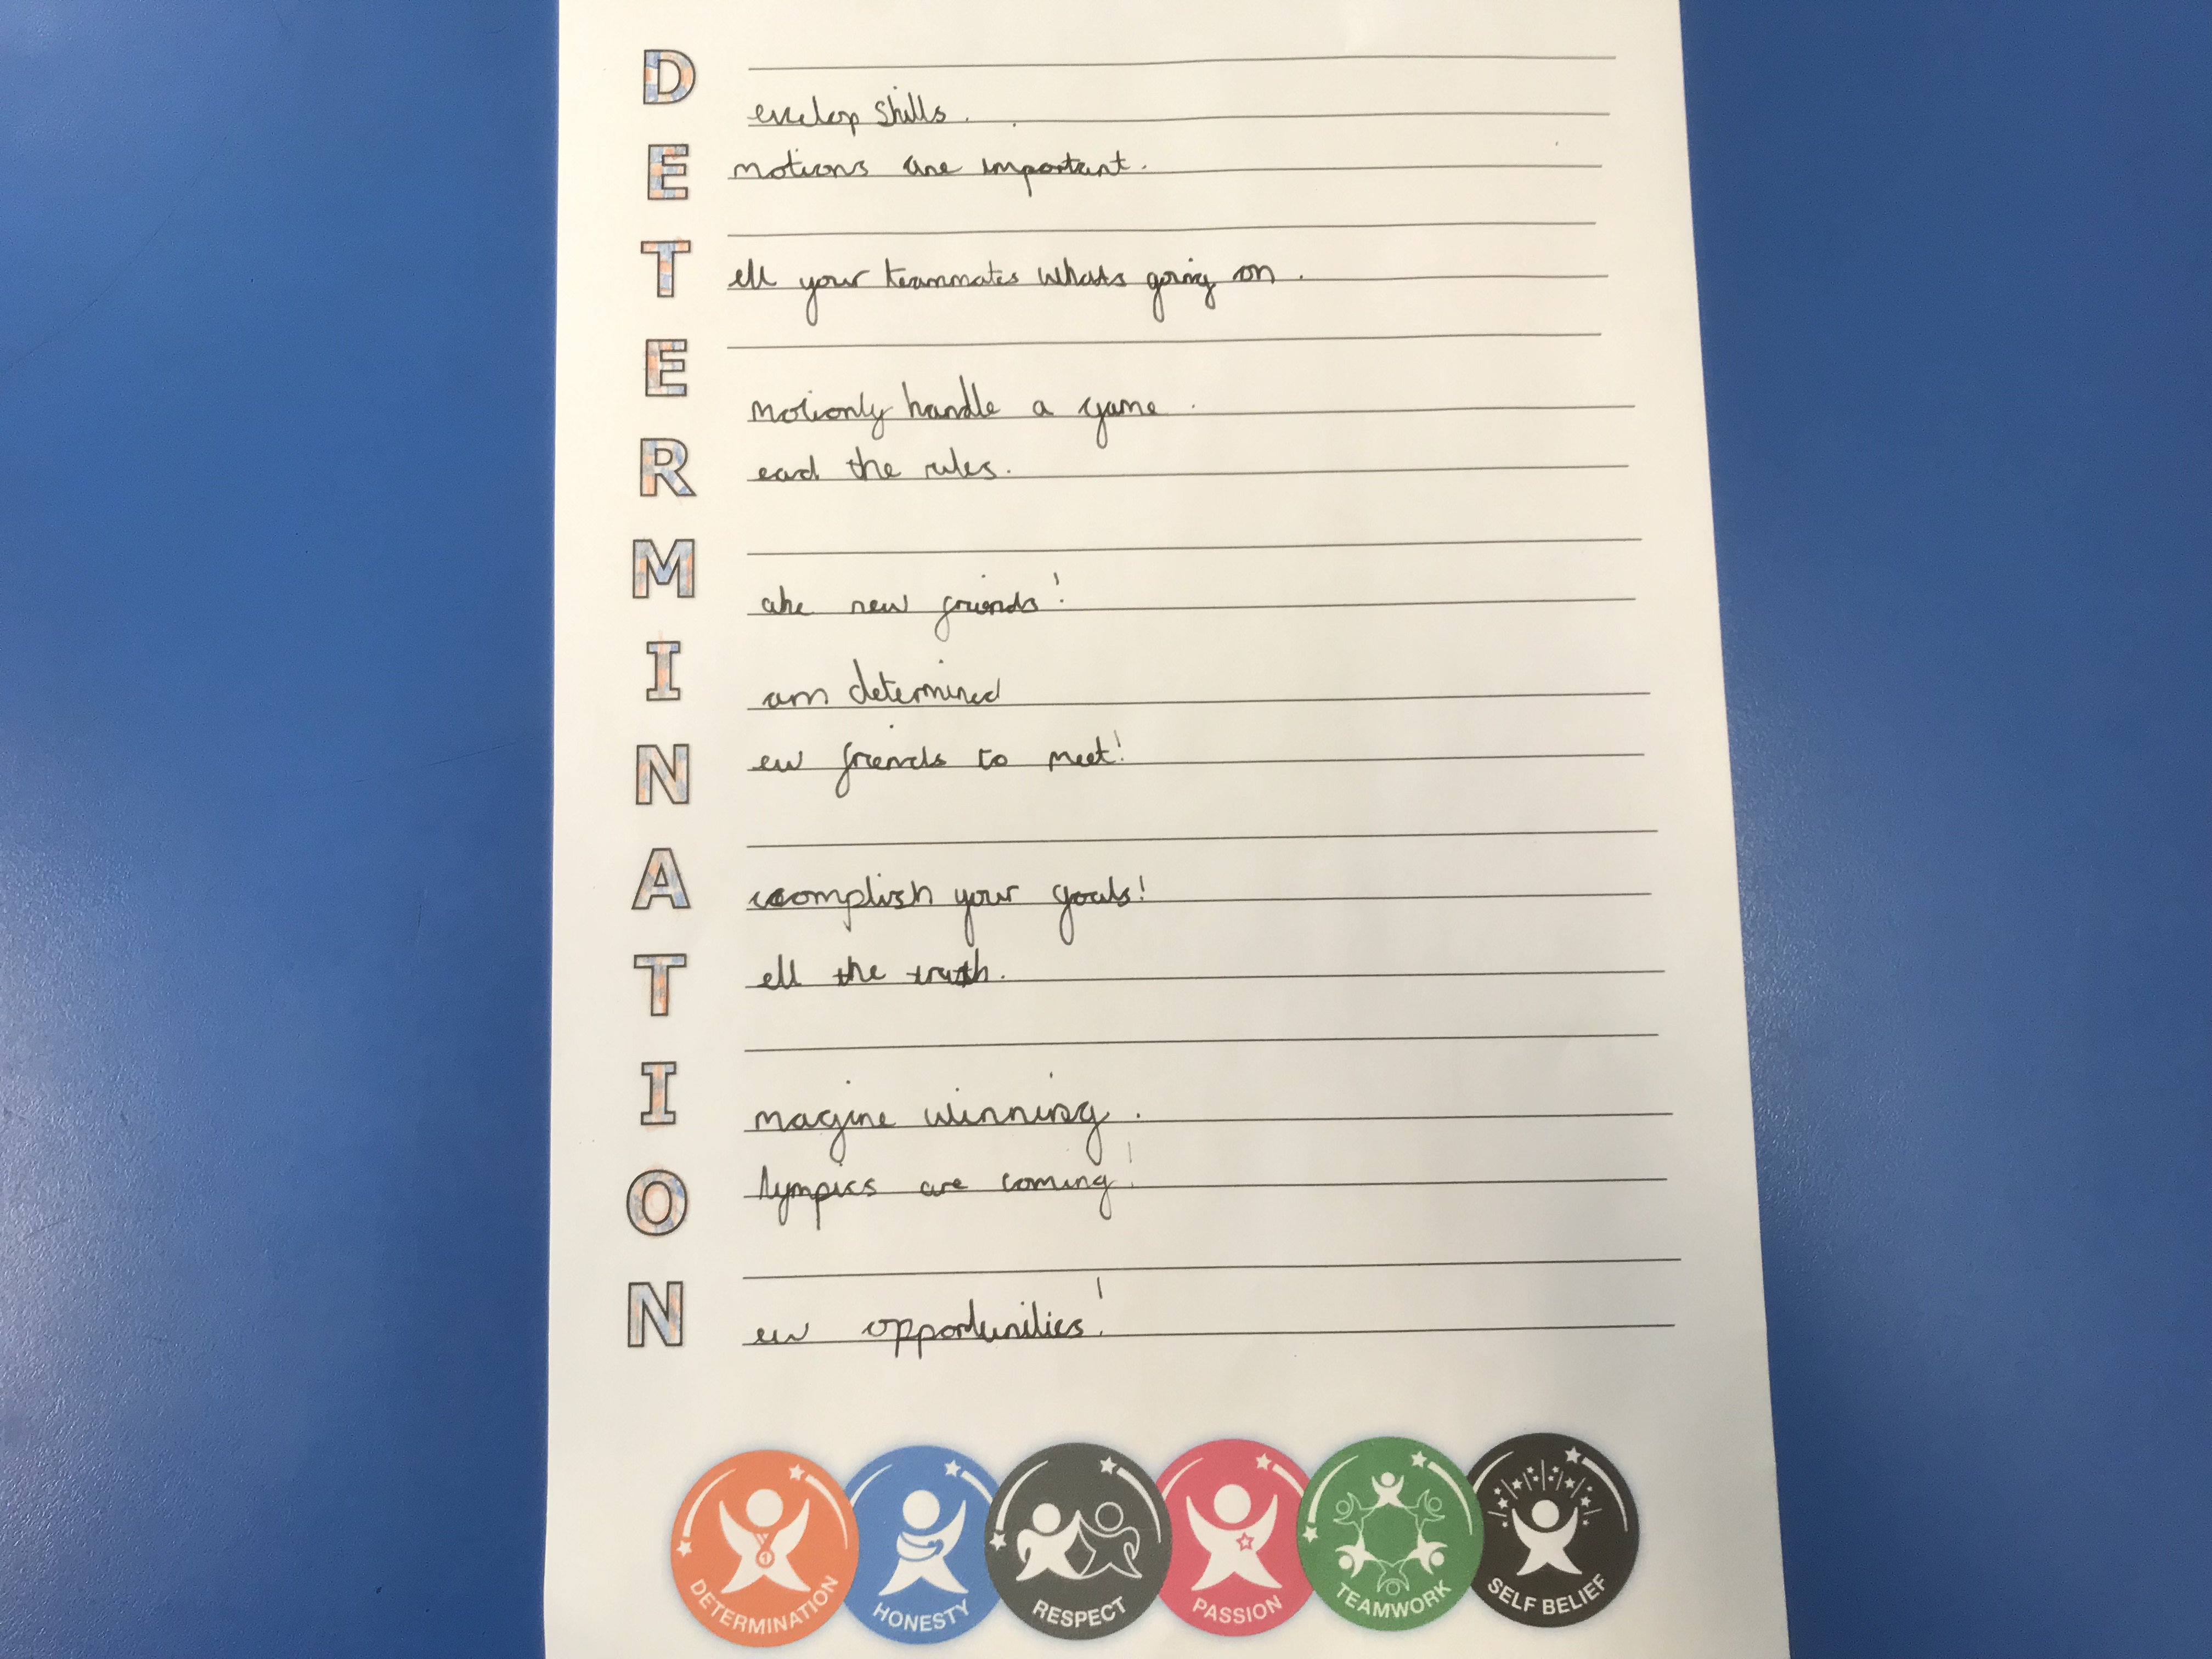 D evelop skills.
E motions are important.
T ell your teammates whats going on.
E motionly handle a game.
R ead the rules.
M ake new friends!
I am determined
N ew friends to meet!
A ccomplish your goals!
T ell the truth.
I magine winning.
O lympics are coming!
N ew opportunities!
DETERMINATION HONESTY RESPECT PASSION TEAMWORK SELF BELIEF